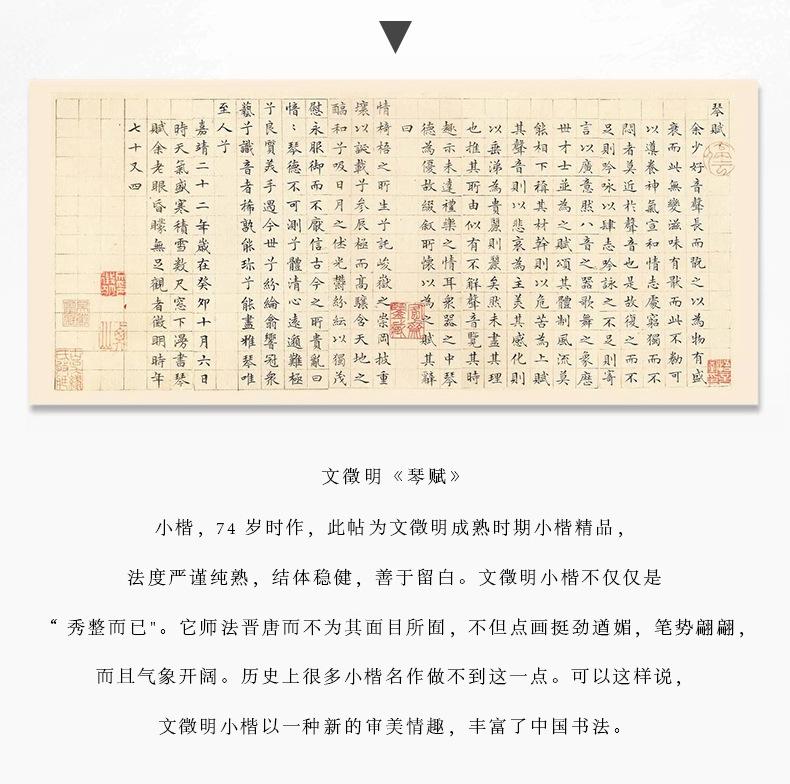 琴賦
余少好音聲長而翫之以為物有盛
衰而此無變滋味有猒而此不勌可
以導養神氣宣和情志處窮獨而不
悶者莫近於聲音也是故復之而不
足則吟咏以肆志吟詠之不足則寄
言以廣意然八音之器歌舞之象歷
世才士並為之賦頌其體制風流莫
能如下稱其材幹則以危苦為上賦
其聲音則以悲哀為主美其感化則
以垂涕為貴麗則麗矣然未盡其理
也推其所由似有不解聲音覽其時
趣示未達禮樂之情耳衆器之中琴
德為優故綴敘所懷以為之賦其辭
曰
惟椅梧之所生兮託峻嶽之崇岡披重
壤以誕載兮參辰極而高驤含天地之
醕和兮吸日月之休光鬱紛紜以獨茂
慰永服御而不厭信古今之所貴亂曰
愔〻琴德不可測兮體清心遠邈難極
兮良質美手遇今世兮紛綸翕響冠衆
藝兮識音者稀孰能珎兮能盡雅琴唯
至人兮
嘉靖二十二年歲在癸卯十月六日
時天氣盛寒積雪數尺窓下漫書琴
賦余老眼昏矇無足觀者徵明時年
七十又四
文徵明《琴赋》
小楷，74 岁时作，此帖为文徵明成熟时期小楷精品，
法度严谨纯熟，结体稳健，善于留白。文徵明小楷不仅仅是
“ 秀整而已"。它师法晋唐而不为其面目所囿，不但点画挺劲遒媚，笔势翩翩，
而且气象开阔。历史上很多小楷名作做不到这一点。可以这样说，
文徵明小楷以一种新的审美情趣，丰富了中国书法。